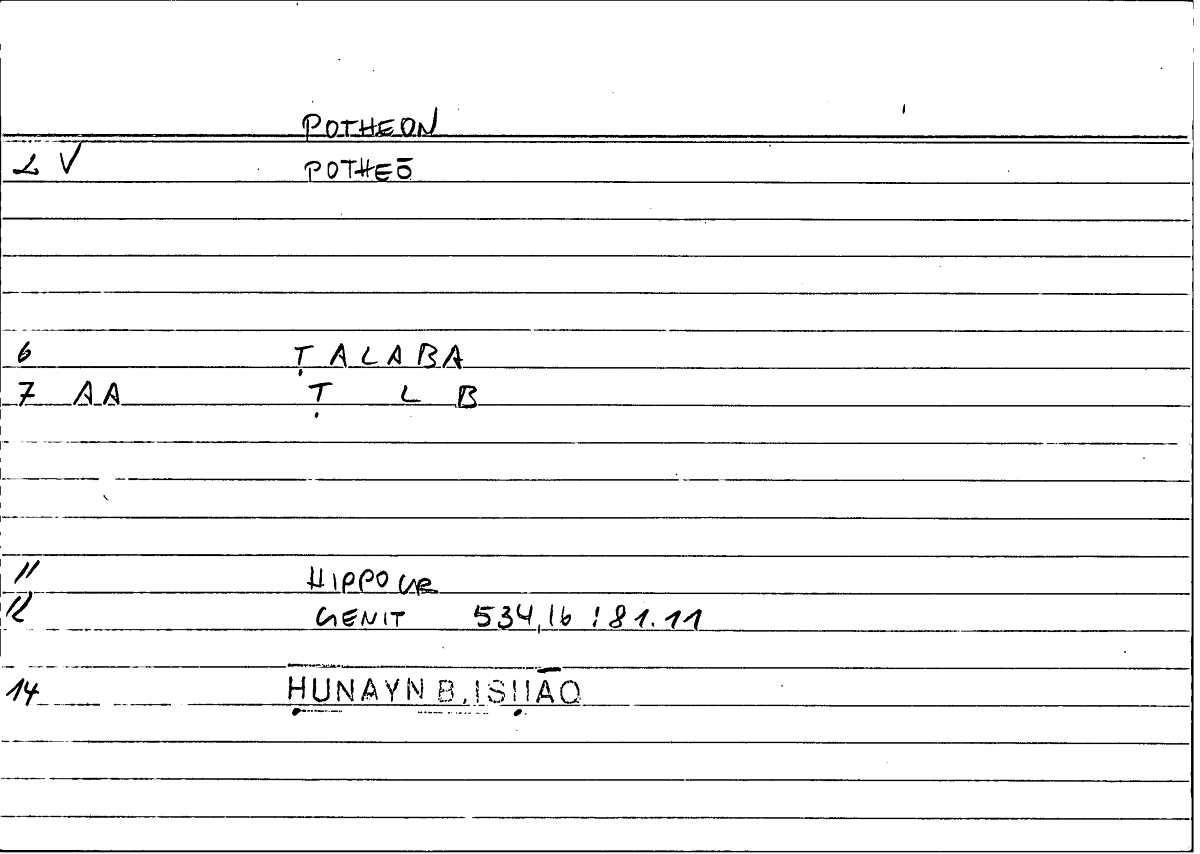 POTHEON
2 V POTHEŌ
6 ṬALABA
7 AA Ṭ L B
11 HIPPOCR
12 GENIT 534,16 : 81.11
14 ḤUNAYN B. ISḤĀQ